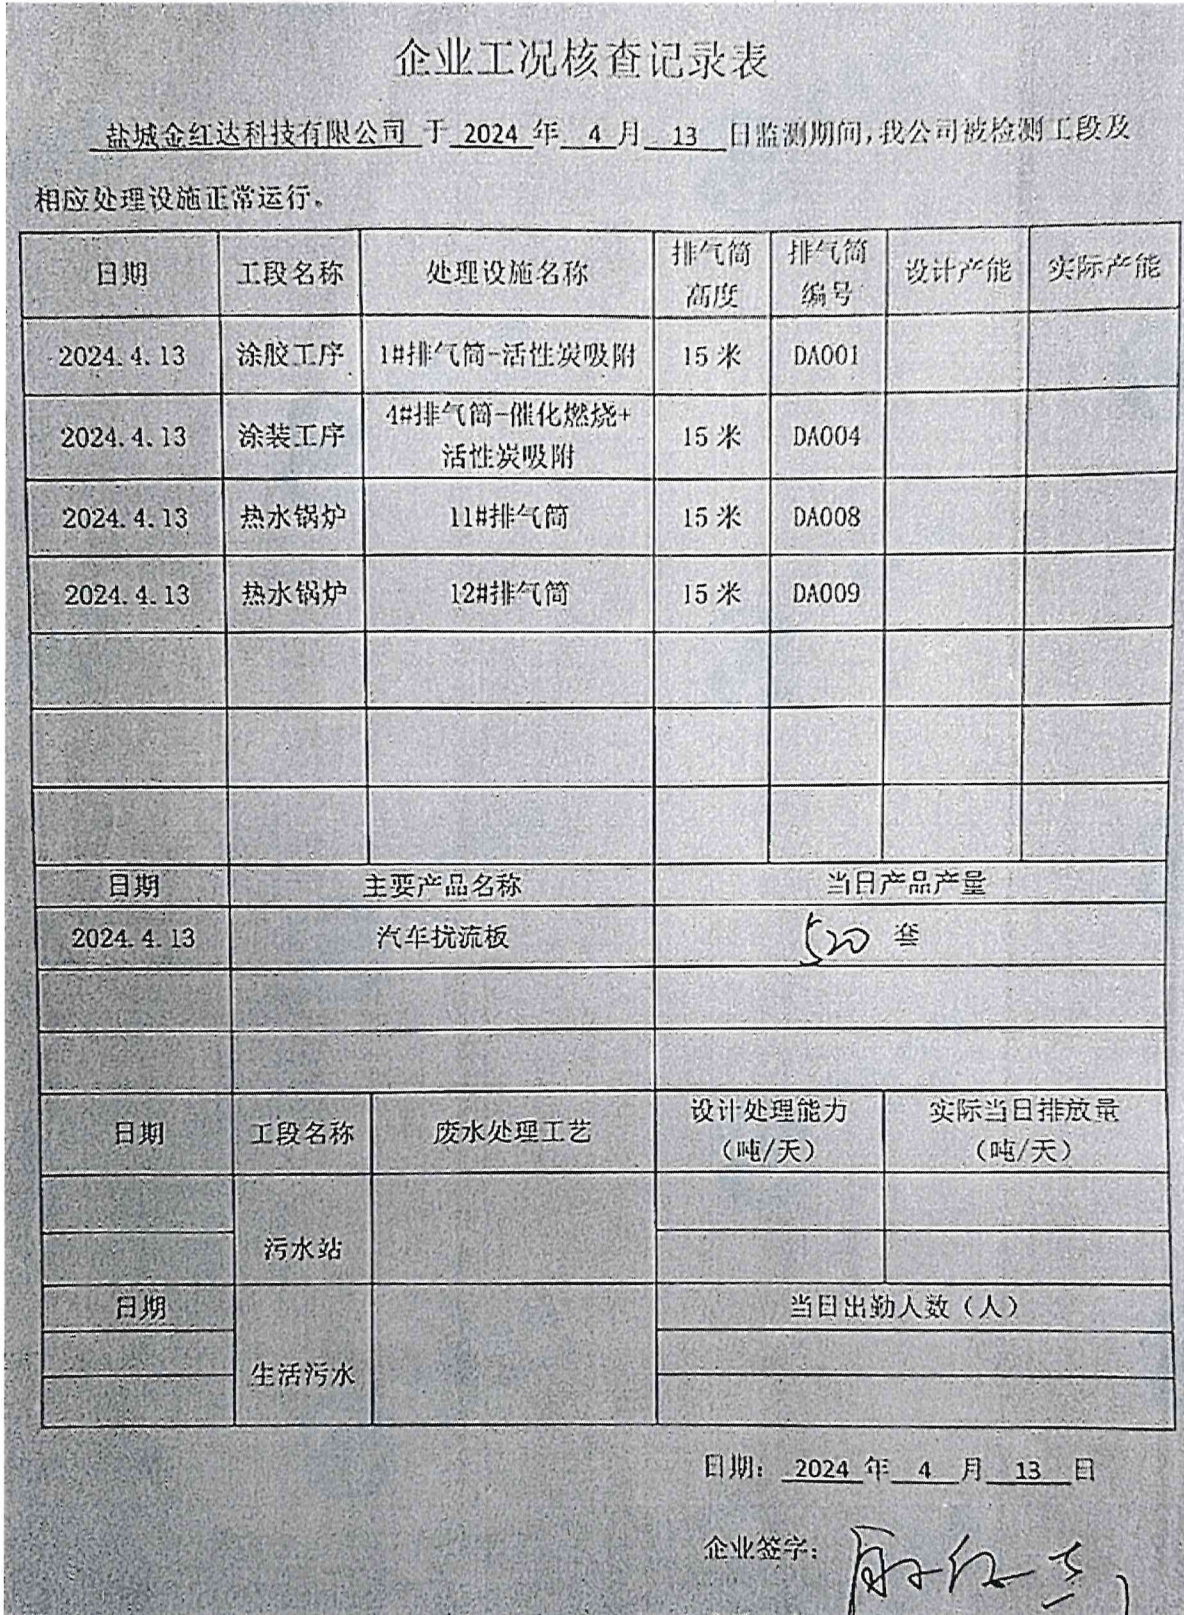 企业工况核查记录表
盐城金红达科技有限公司 于 2024 年 4 月 13 日监测期间,我公司被检测工段及
相应处理设施正常运行。
日期 工段名称 处理设施名称 排气筒高度 排气筒编号 设计产能 实际产能
2024.4.13 涂胶工序 1#排气筒-活性炭吸附 15米 DA001
2024.4.13 涂装工序 4#排气筒-催化燃烧+活性炭吸附 15米 DA004
2024.4.13 热水锅炉 11#排气筒 15米 DA008
2024.4.13 热水锅炉 12#排气筒 15米 DA009
日期 主要产品名称 当日产品产量
2024.4.13 汽车扰流板 520 套
日期 工段名称 废水处理工艺 设计处理能力(吨/天) 实际当日排放量(吨/天)
污水站
日期 当日出勤人数(人)
生活污水
日期: 2024 年 4 月 13 日
企业签字: